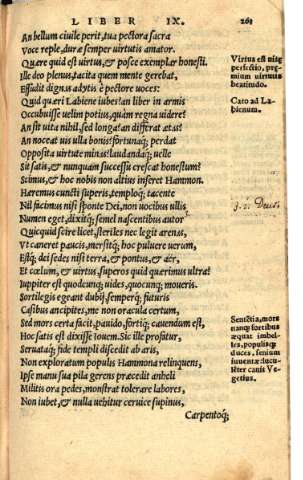 LIBER IX. 261
An bellum ciuile perit, tua pectora sacra
Voce reple, duræ semper uirtutis amator.
Quære quid est uirtus, & posce exemplar honesti.
Ille deo plenus, tacita quem mente gerebat,
Effudit dignas adytis è pectore uoces:
Quid quæri Labiene iubes? an liber in armis
Occubuisse uelim potius, quàm regna uidere?
An sit uita nihil, sed longa? an differat ætas?
An noceat uis ulla bono? fortunaq; perdat
Opposita uirtute minas? laudandaq; uelle
Sit satis, & nunquam successu crescat honestum?
Scimus, & hoc nobis non altius inseret Hammon.
Hæremus cuncti superis, temploq; tacente
Nil facimus nisi sponte Dei, non uocibus ullis
Numen eget, dixitq; semel nascentibus autor
Quicquid scire licet, steriles nec legit arenas,
Vt caneret paucis, mersitq; hoc puluere uerum,
Estq; dei sedes nisi terra, & pontus, & aër,
Et cœlum, & uirtus, superos quid quærimus ultra?
Iuppiter est quodcunq; uides, quocunq; moueris.
Sortilegis egeant dubij, semperq; futuris
Casibus ancipites, me non oracula certum,
Sed mors certa facit, pauido, fortiq; cadendum est,
Hoc satis est dixisse Iouem. Sic ille profatur,
Seruataq; fide templi discedit ab aris,
Non exploratum populis Hammona relinquens,
Ipse manu sua pila gerens præcedit anheli
Militis ora pedes, monstrat tolerare labores,
Non iubet, & nulla uehitur ceruice supinus,
Carpentoq;
Virtus est uitæ
perfectio, præ
mium uirtutis
beatitudo.
Cato ad La-
bienum.
Sentētia, mors
nanq; fortibus
æquat imbel-
les, populisq;
duces, senium
iuuentæ: lucu-
lēter canis Ve
getius.